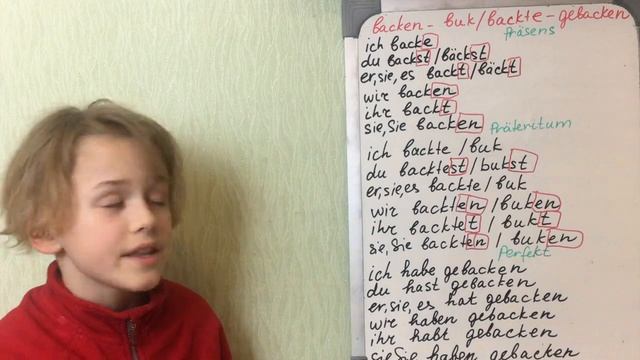 backen - buk/backte - gebacken
Präsens
ich backe
du backst/bäckst
er,sie,es backt/bäckt
wir backen
ihr backt
sie,Sie backen
Präteritum
ich backte/buk
du backtest/bukst
er,sie,es backte/buk
wir backten/buken
ihr backtet/bukt
sie,Sie backten/buken
Perfekt
ich habe gebacken
du hast gebacken
er,sie,es hat gebacken
wir haben gebacken
ihr habt gebacken
sie,Sie haben gebacken